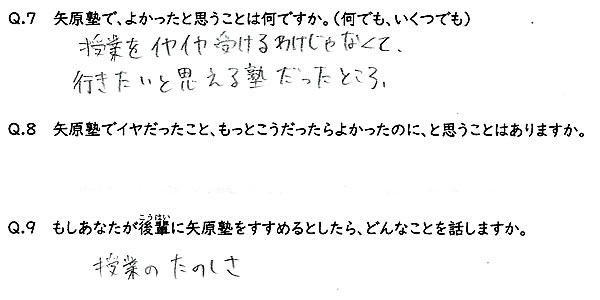 Q.7 矢原塾で、よかったと思うことは何ですか。(何でも、いくつでも)
授業をイヤイヤ受けるわけじゃなくて、
行きたいと思える塾だったところ。
Q.8 矢原塾でイヤだったこと、もっとこうだったらよかったのに、と思うことはありますか。
Q.9 もしあなたが後輩に矢原塾をすすめるとしたら、どんなことを話しますか。
こうはい
授業のたのしさ